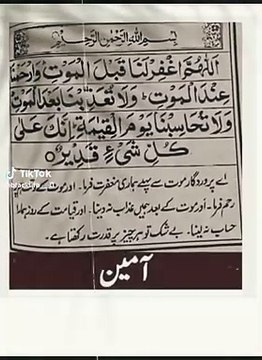 بِسْمِ اللهِ الرَّحْمٰنِ الرَّحِيْمِ
اَللّٰهُمَّ اغْفِرْلَنَا قَبْلَ الْمَوْتِ وَارْحَمْنَا
عِنْدَ الْمَوْتِ وَلَا تُعَذِّبْنَا بَعْدَ الْمَوْتِ
وَلَا تُحَاسِبْنَا يَوْمَ الْقِيٰمَةِ اِنَّكَ عَلٰى
كُلِّ شَيْءٍ قَدِيْرٌ
اے پروردگار موت سے پہلے ہماری مغفرت فرما۔ اور موت
TikTok
رحم فرما۔ اور موت کے بعد ہمیں عذاب نہ دینا۔ اور قیامت کے روز ہمارا
حساب نہ لینا۔ بے شک تو ہر چیز پر قدرت رکھتا ہے۔
آمین